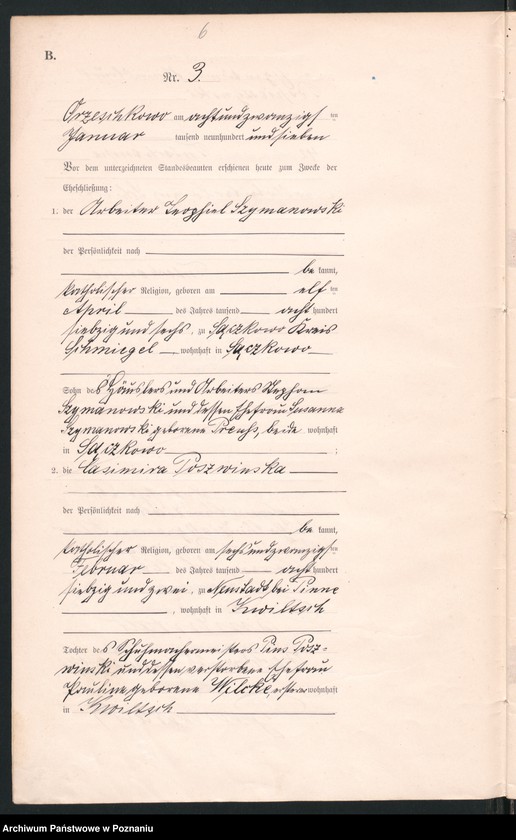 6
B.
Nr. 3.
Orzeschkowo am achtundzwanzigsten
Januar tausend neunhundert und sieben
Vor dem unterzeichneten Standesbeamten erschienen heute zum Zwecke der
Eheschließung:
1. der Arbeiter Teophiel Szymanowski
der Persönlichkeit nach
be kannt,
katholischer Religion, geboren am elften
April des Jahres tausend acht hundert
siebzig und sechs, zu Sączkowo Kreis
Schmiegel wohnhaft in Sączkowo
Sohn des Häuslers und Arbeiters Stephan
Szymanowski und dessen Ehefrau Susanna
Szymanowski geborene, beide wohnhaft
in Sączkowo ;
2. die Casimira Poszwinska
der Persönlichkeit nach
be kannt,
katholischer Religion, geboren am sechsundzwanzigsten
Februar des Jahres tausend acht hundert
siebzig und zwei, zu Neustadt bei Pinne
, wohnhaft in Kwiltsch
Tochter des Schuhmachermeisters Pius Posz-
winski und dessen verstorbene Ehefrau
Pauline geborene Wilcke, ersterer wohnhaft
in Kwiltsch
Archiwum Państwowe w Poznaniu